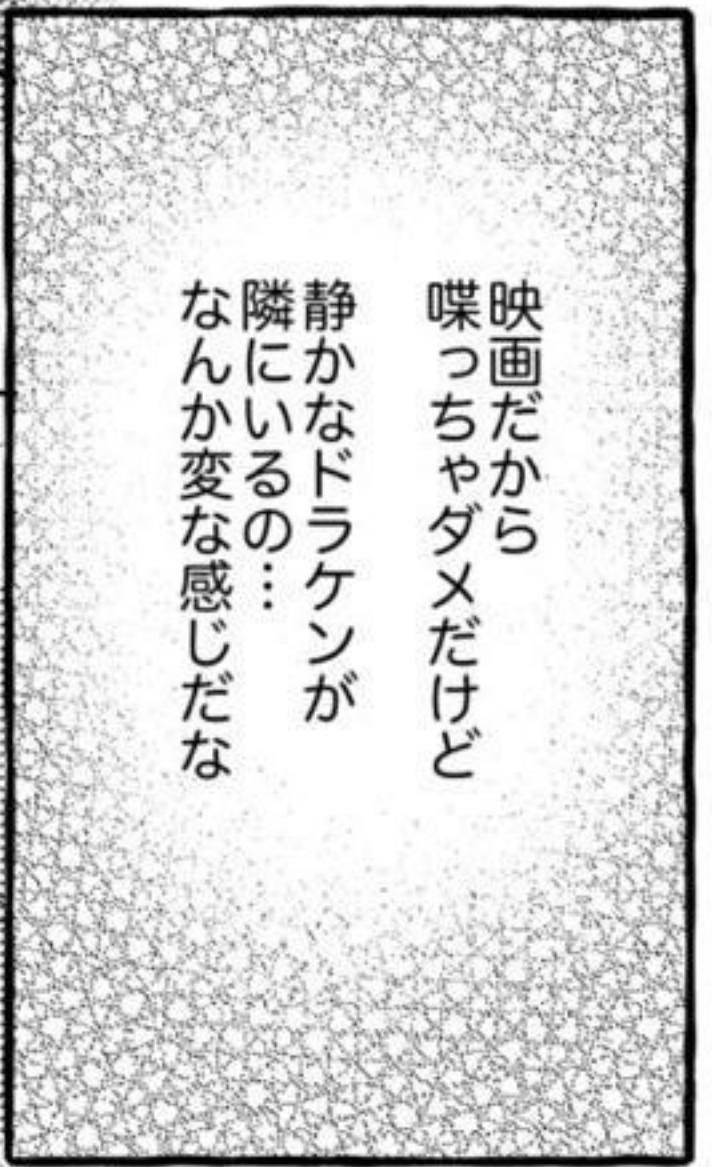 映画だから
喋っちゃダメだけど
静かなドラケンが
隣にいるの…
なんか変な感じだな